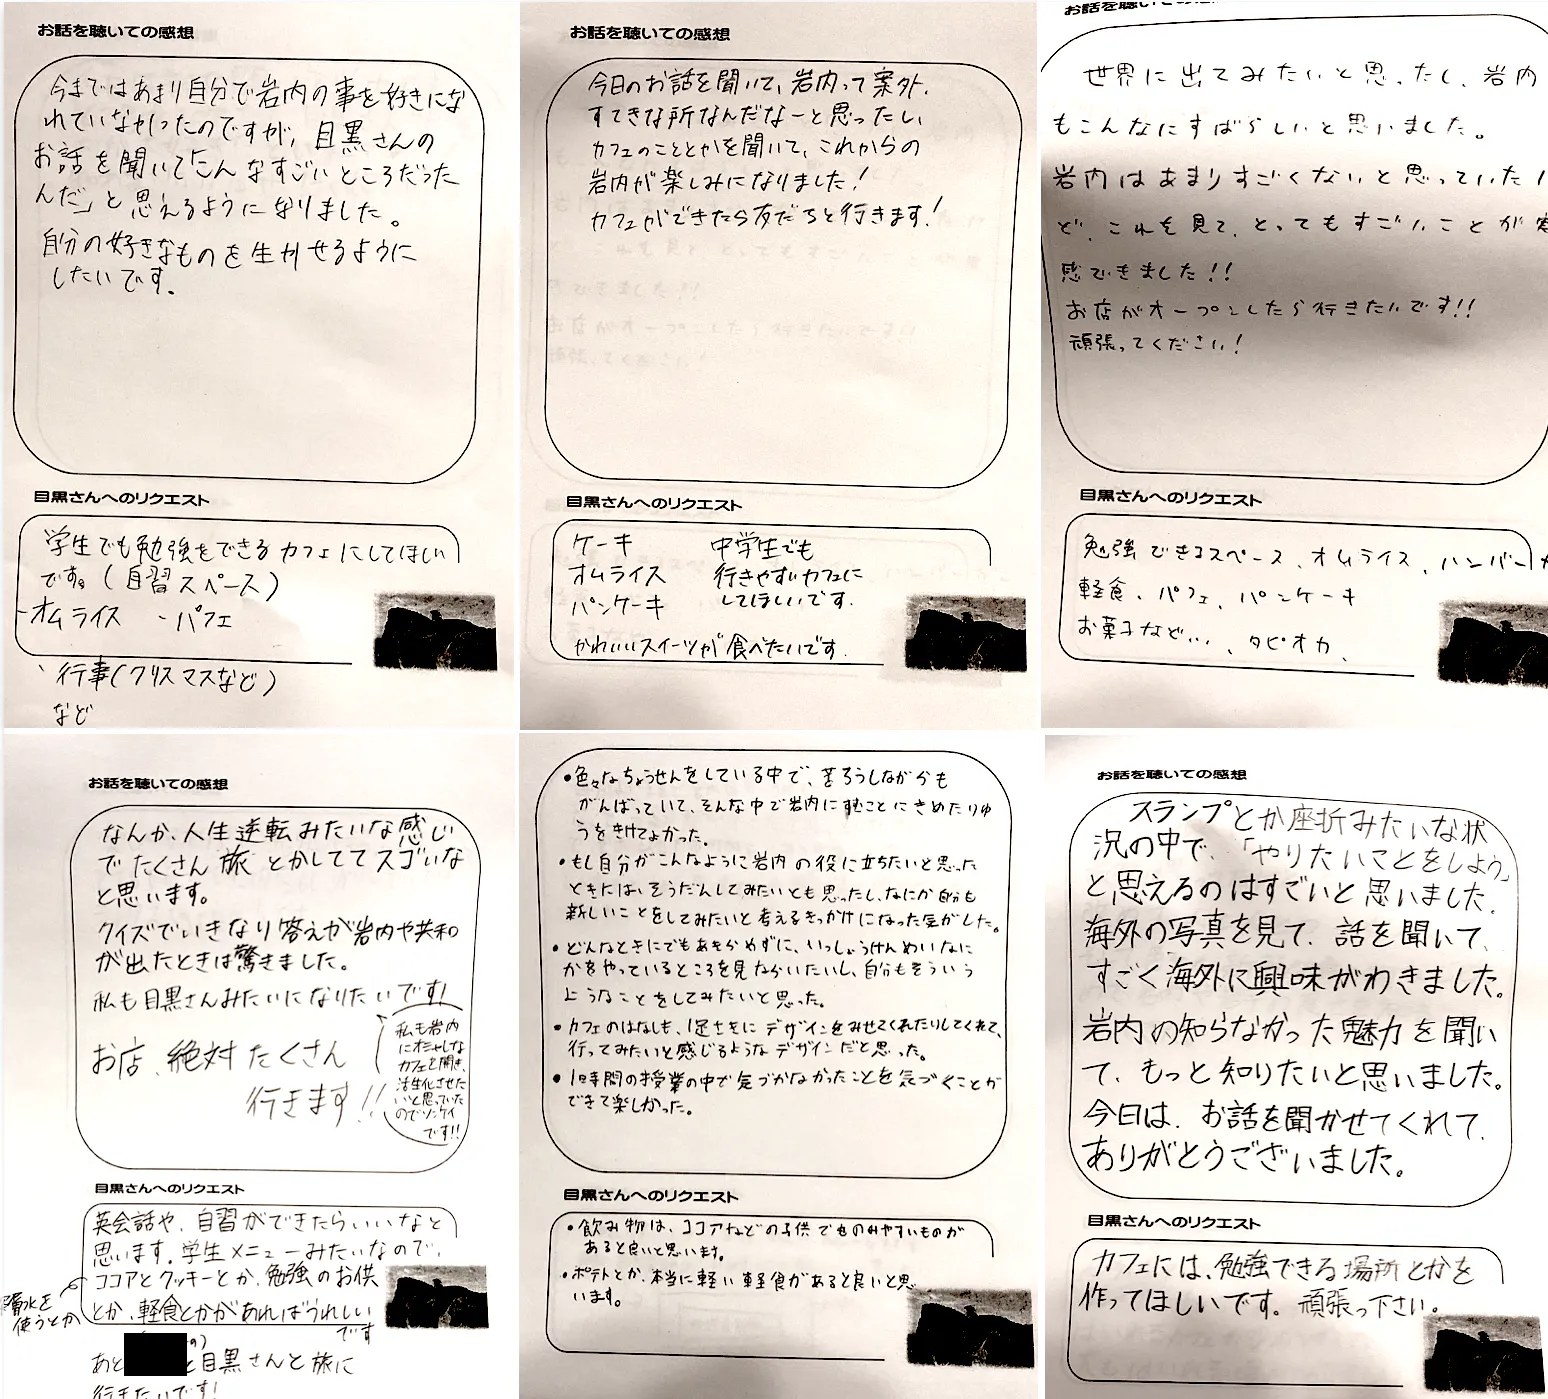 お話を聴いての感想
今まではあまり自分で岩内の事を好きにな
れていなかったのですが、目黒さんの
お話を聞いて「こんなすごいところだった
んだ」と思えるようになりました。
自分の好きなものを生かせるように
したいです。
目黒さんへのリクエスト
学生でも勉強をできるカフェにしてほしい
です。(自習スペース)
-オムライス -パフェ
、行事(クリスマスなど)
など
お話を聴いての感想
今日のお話を聞いて、岩内って案外、
すてきな所なんだなーと思ったし
カフェのこととかを聞いて、これからの
岩内が楽しみになりました!
カフェができたら友だちと行きます!
目黒さんへのリクエスト
ケーキ 中学生でも
オムライス 行きやすいカフェに
パンケーキ してほしいです.
かわいいスイーツが食べたいです.
お話を聴いての感想
世界に出てみたいと思ったし、岩内
もこんなにすばらしいと思いました。
岩内はあまりすごくないと思っていたけ
ど、これを見て、とってもすごいことが実
感できました!!
お店がオープンしたら行きたいです!!
頑張ってください!
目黒さんへのリクエスト
勉強できるスペース、オムライス、ハンバーガ
軽食、パフェ、パンケーキ
お菓子など...、タピオカ、
お話を聴いての感想
なんか、人生逆転みたいな感じ
でたくさん旅とかしててスゴいな
と思います。
クイズでいきなり答えが岩内や共和
が出たときは驚きました。
私も目黒さんみたいになりたいです!
私も岩内
にオシャレな
カフェを開き、
活性化させた
いと思っていた
のでソンケイ
です!!
お店、絶対たくさん
行きます!!
目黒さんへのリクエスト
英会話や、自習ができたらいいなと
思います。学生メニューみたいなので、
ココアとクッキーとか、勉強のお供
とか、軽食とかがあればうれしい
です
水を
使うとか
あと と目黒さんと旅に
行きたいです!
•色々なちょうせんをしている中で、苦ろうしながらも
がんばっていて、そんな中で岩内にすむことにきめたりゆ
うをきけてよかった。
•もし自分がこんなように岩内の役に立ちたいと思った
ときには、そうだんしてみたいとも思ったし、なにか自分も
新しいことをしてみたいと考えるきっかけになった気がした。
•どんなときにでもあきらめずに、いっしょうけんめいなに
かをやっているところを見ならいたいし、自分もそういう
ようなことをしてみたいと思った。
•カフェのはなしも、1足さきにデザインをみせてくれたりしてくれて、
行ってみたいと感じるようなデザインだと思った。
•1時間の授業の中で気づかなかったことを気づくことが
できて楽しかった。
目黒さんへのリクエスト
•飲み物は、ココアなどの子供でものみやすいものが
あると良いと思います。
•ポテトとか、本当に軽い軽食があると良いと思
います。
お話を聴いての感想
スランプとか座折みたいな状
況の中で、「やりたいことをしよう」
と思えるのはすごいと思いました.
海外の写真を見て、話を聞いて、
すごく海外に興味がわきました。
岩内の知らなかった魅力を聞い
て、もっと知りたいと思いました。
今日は、お話を聞かせてくれて、
ありがとうございました。
目黒さんへのリクエスト
カフェには、勉強できる場所とかを
作ってほしいです。頑張っ下さい。